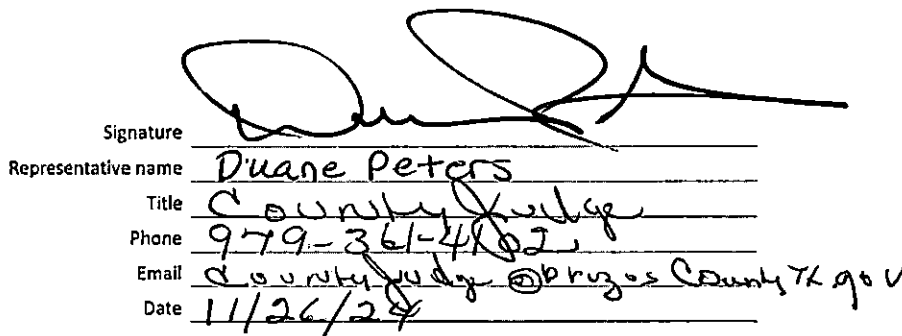 Signature
Representative name Duane Peters
Title County Judge
Phone 979-361-4102
Email CountyJudge@brazosCountyTx.gov
Date 11/26/24